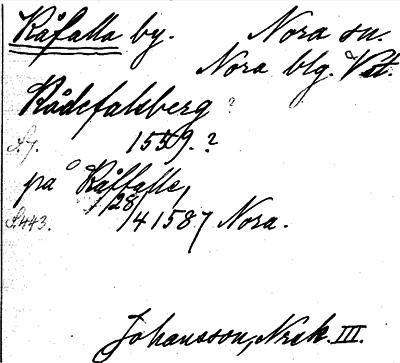 Råfalla by. Nora sn.
Nora blg. Vstm.
Rådefalsberg ?
1559.?
på Råffalle,
28/4 1587 Nora.
Johansson, Nrsk. III.